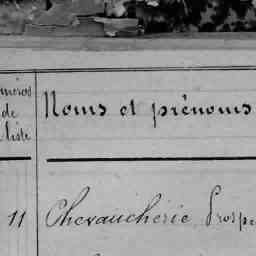 méros
de
liste
Noms et prénoms
11 Chevaucherie, Prospe